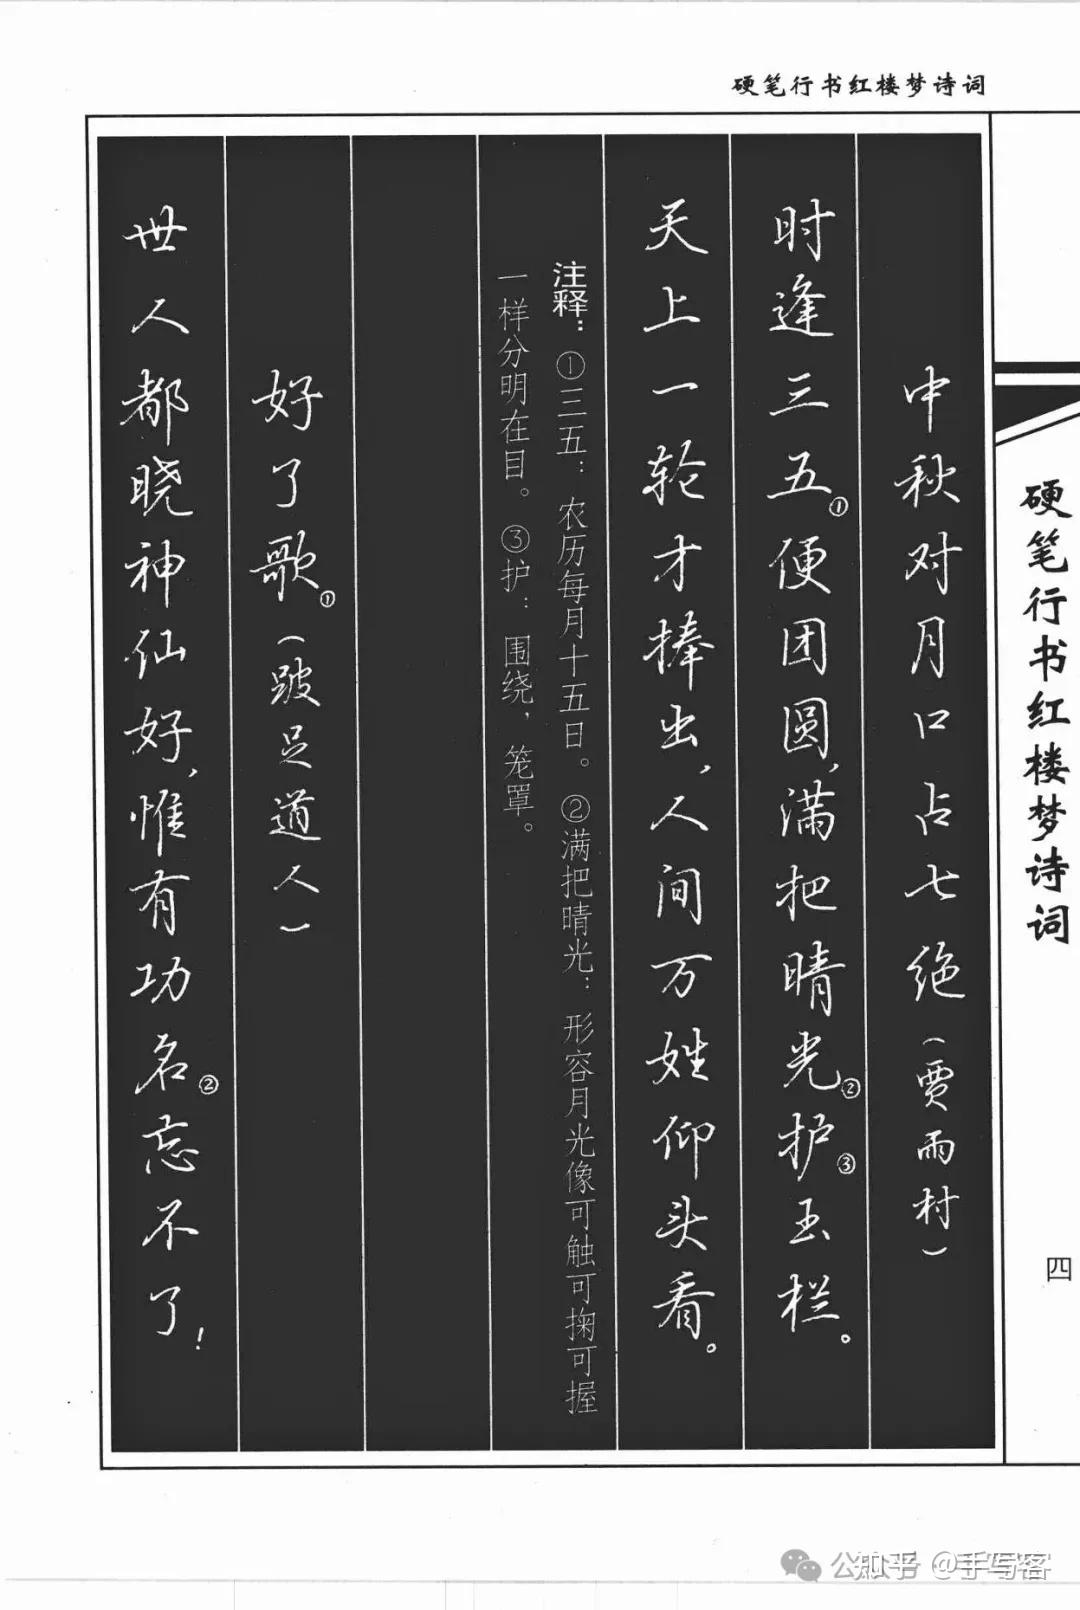 硬笔行书红楼梦诗词
硬笔行书红楼梦诗词
四
中秋对月口占七绝(贾雨村)
时逢三五①便团圆,满把晴光②护③玉栏。
天上一轮才捧出,人间万姓仰头看。
注释:①三五:农历每月十五日。②满把晴光:形容月光像可触可掬可握
一样分明在目。③护:围绕,笼罩。
好了歌①(跛足道人)
世人都晓神仙好,惟有功名②忘不了!
知乎 @手写客